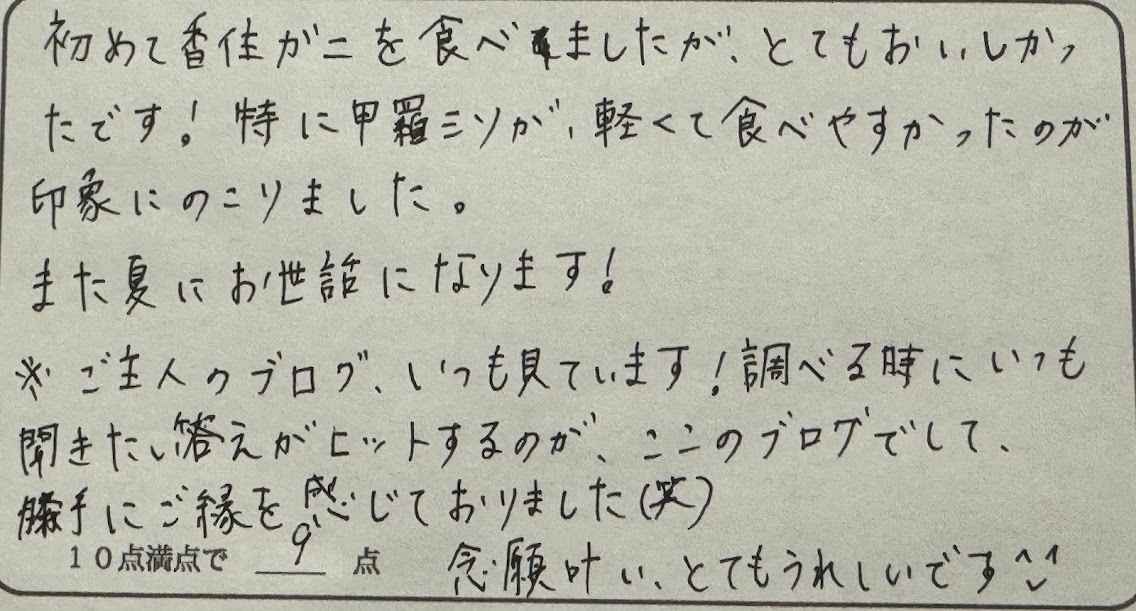 初めて香住がニを食べましたが、とてもおいしかっ
たです！特に甲羅ミソが、軽くて食べやすかったのが
印象にのこりました。
また夏にお世話になります！
※ご主人のブログ、いつも見ています！調べる時にいつも
聞きたい答えがヒットするのが、ここのブログでして、
勝手にご縁を感じておりました(笑)
10点満点で 9 点 念願叶い、とてもうれしいです^^